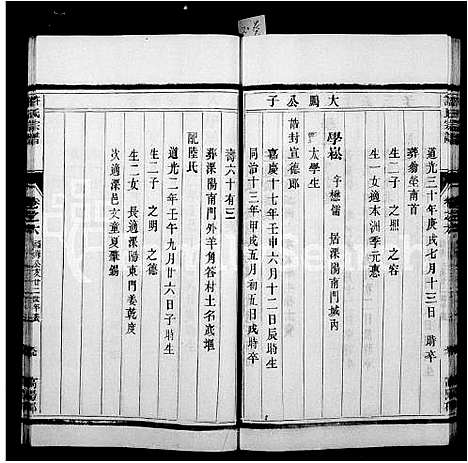 大鳳公子
道光三十年庚戌七月十三日 時卒
葬翁塋南首
生二子 之熙 之容
生一女適本洲季元惠
學崧 字懋儒 居溧陽南門城內
太學生
誥封宣德郎
嘉慶十七年壬申六月十二日辰時生
同治十三年甲戌五月初五日戌時卒
壽六十有三
葬溧陽南門外羊角谷村土名底堰
配陸氏
道光二年壬午九月廿六日子時生
生二子 之明 之德
生二女 長適溧陽東門姜乾度
次適溧邑文童夏肇錫
氏宗譜
卷之六